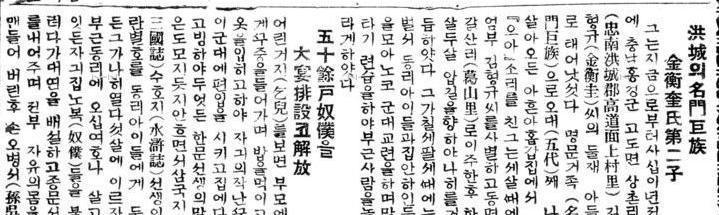 洪城의名門巨族
金衡奎氏第二子
그는지금으로부터사십이년전
에 충남홍성군 고도면 상촌리
(忠南洪城郡高道面上村里) 김
형규(金衡圭)씨의 둘재 아들
로 태어낫섯다 명문거족 (名
門巨族)으로오대(五代)재 나
살아오든 아흔아홉간집에서
『으아』소리를 친그는세살때에
엄부 김형규씨를사별하고동면
갈산리(葛山里)로이주한후 한
살두살 압길을향하야나히를거
듭하얏다 그가칠세팔세때에는
벌서 동리아이들과집안하인들
을모아노코 군대교련을하며말
타기 련습을하야부근사람을놀
라게하얏다
五十餘戶奴僕을
大宴排設코解放
어린거지(乞兒)를보면 부모에
게꾸중을들어가며 밥을먹이고
옷을입히고하야 자긔의작난군
이군대에편입을 시키고집에다
고빙하야두엇든 한문선생의말
은도모지듯지안흐면서삼국지
三國誌)수호지(水滸誌)선생이
란별호를 동리아이들에게 듯
든그가나히열다섯살에 이르자
부근동리에 오십여호나 살고
잇든자긔집노복(奴僕)들을불
러다가대연을 배설하고종문서
를내여주며 왼부 자유의몸을
맨들어 버린후 손오병서(孫吳